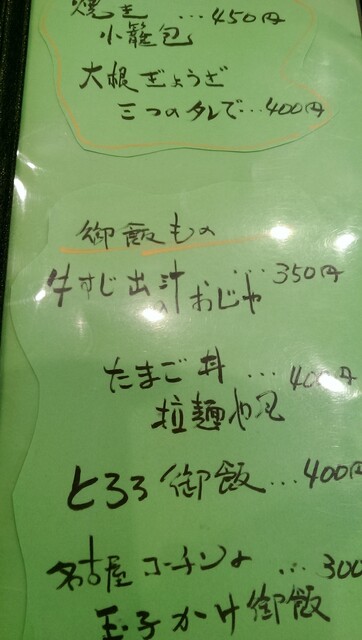 焼き ...450円
小籠包
大根ぎょうざ
三つのタレで...400円
御飯もの
牛すじ出汁のおじや ...350円
たまご丼 ...400円
拉麺や風
とろろ御飯...400円
名古屋コーチンの ...300
玉子かけ御飯